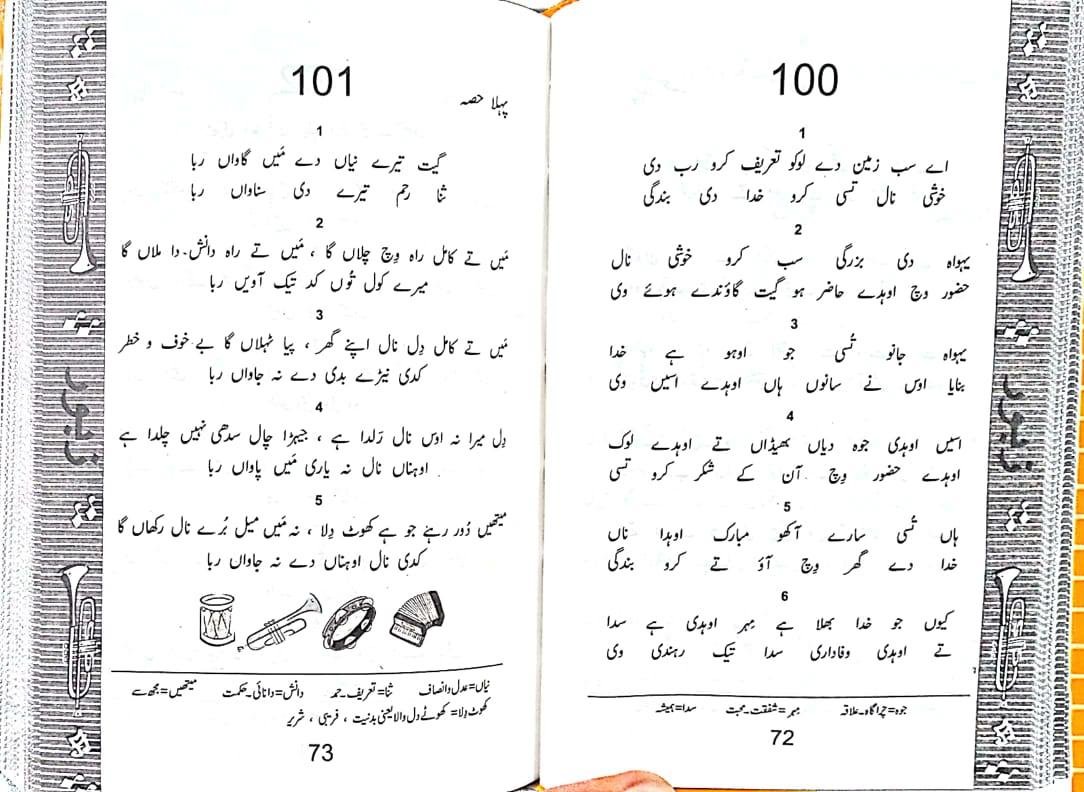 100
1
اے سب زمین دے لوکو تعریف کرو رب دی
خوشی نال تسی کرو خدا دی بندگی
2
یہواہ دی بزرگی سب کرو خوشی نال
حضور وچ اوہدے حاضر ہو گیت گاؤندے ہوئے وی
3
یہواہ جانو تُسی جو اوہو ہے خدا
بنایا اوس نے سانوں ہاں اوہدے اسیں وی
4
اسیں اوہدی جوہ دیاں بھیڈاں تے اوہدے لوک
اوہدے حضور وِچ آن کے شکر کرو تسی
5
ہاں تُسی سارے آکھو مبارک اوہدا ناں
خدا دے گھر وِچ آؤ تے کرو بندگی
6
کیوں جو خدا بھلا ہے مِہر اوہدی ہے سدا
تے اوہدی وفاداری سدا تیک رہندی وی
جوہ=چراگاہ۔علاقہ مِہر=شفقت۔محبت سدا=ہمیشہ
72
زبور
101
پہلا حصہ
1
گیت تیرے نیاں دے مَیں گاواں ربا
ثنا رحم تیرے دی سناواں ربا
2
مَیں تے کامل راہ وِچ چلاں گا ، مَیں تے راہ دانش۔دا ملاں گا
میرے کول تُوں کد تیک آویں ربا
3
مَیں تے کامل دِل نال اپنے گھر ، پیا ٹہلاں گا بے خوف و خطر
کدی نیڑے بدی دے نہ جاواں ربا
4
دِل میرا نہ اوس نال رَلدا ہے ، جیہڑا چال سدھی نہیں چلدا ہے
اوہناں نال نہ یاری مَیں پاواں ربا
5
میتھیں دُور رہنے جو ہے کھوٹ دِلا ، نہ مَیں میل بُرے نال رکھاں گا
کدی نال اوہناں دے نہ جاواں ربا
نیاں=عدل وانصاف ثنا=تعریف۔حمد دانش=دانائی۔حکمت میتھیں=مجھ سے
کھوٹ دِلا= کھوٹے دل والا یعنی بدنیت ، فریبی ، شریر
73
زبور